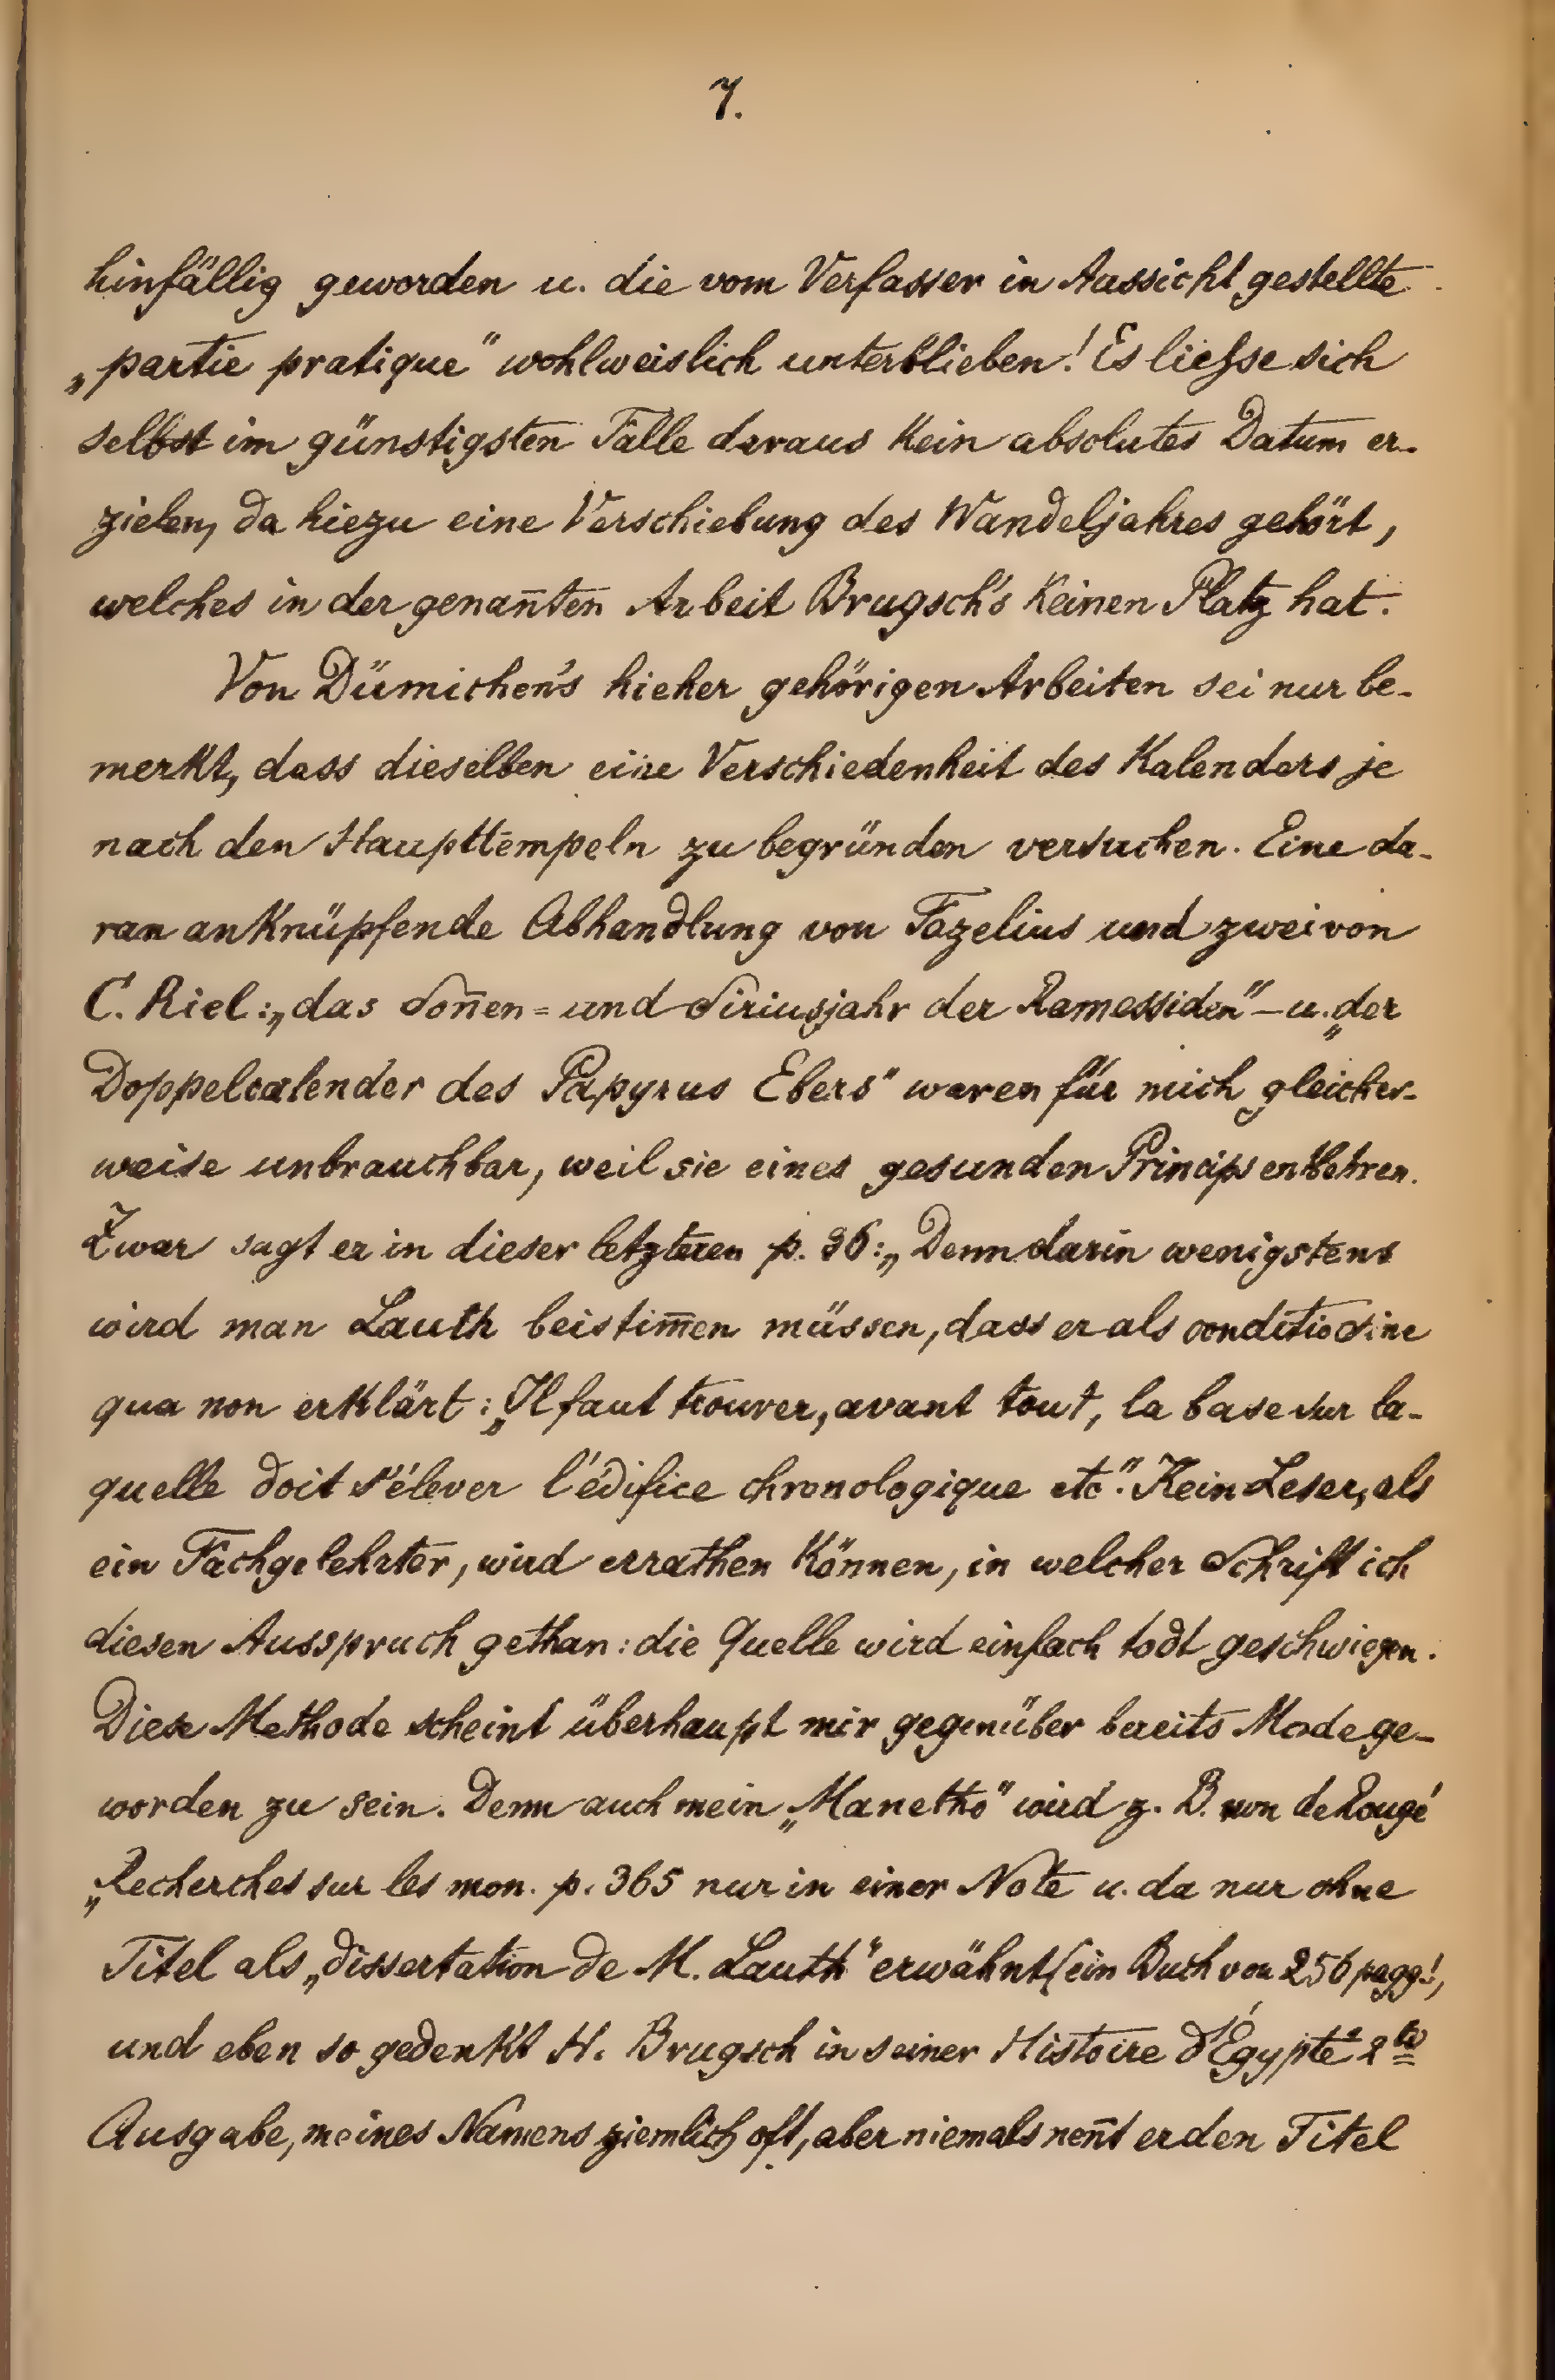 7.
hinfällig geworden u. die vom Verfasser in Aussicht gestellte
„partie pratique" wohlweislich unterblieben! Es liesse sich
selbst im günstigsten Falle daraus kein absolutes Datum er-
zielen, da hiezu eine Verschiebung des Wandeljahres gehört,
welches in der genan̄ten Arbeit Brugsch's keinen Platz hat.
Von Dümichen's hieher gehörigen Arbeiten sei nur be-
merkt, dass dieselben eine Verschiedenheit des Kalenders je
nach den Haupttempeln zu begründen versuchen. Eine da-
ran anknüpfende Abhandlung von Fazelius und zwei von
C. Riel: „das Son̄en= und Siriusjahr der Ramessiden" – u. „der
Doppelcalender des Papyrus Ebers" waren für mich gleicher-
weise unbrauchbar, weil sie eines gesunden Princips entbehren.
Zwar sagt er in dieser letzteren p. 36: „Denn darin wenigstens
wird man Lauth beistim̄en müssen, dass er als conditio sine
qua non erklärt: „Il faut trouver, avant tout, la base sur la-
quelle doit s'élever l'édifice chronologique etc". Kein Leser, als
ein Fachgelehrter, wird errathen können, in welcher Schrift ich
diesen Ausspruch gethan: die Quelle wird einfach todt geschwiegen.
Diese Methode scheint überhaupt mir gegenüber bereits Mode ge-
worden zu sein. Denn auch mein „Manetho" wird z. B. von de Rougé
„Recherches sur les mon. p. 365 nur in einer Note u. da nur ohne
Titel als „dissertation de M. Lauth" erwähnt (ein Buch von 256 pagg!,
und eben so gedenkt H. Brugsch in seiner Histoire d'Égypte 2te
Ausgabe, meines Namens ziemlich oft, aber niemals nen̄t er den Titel